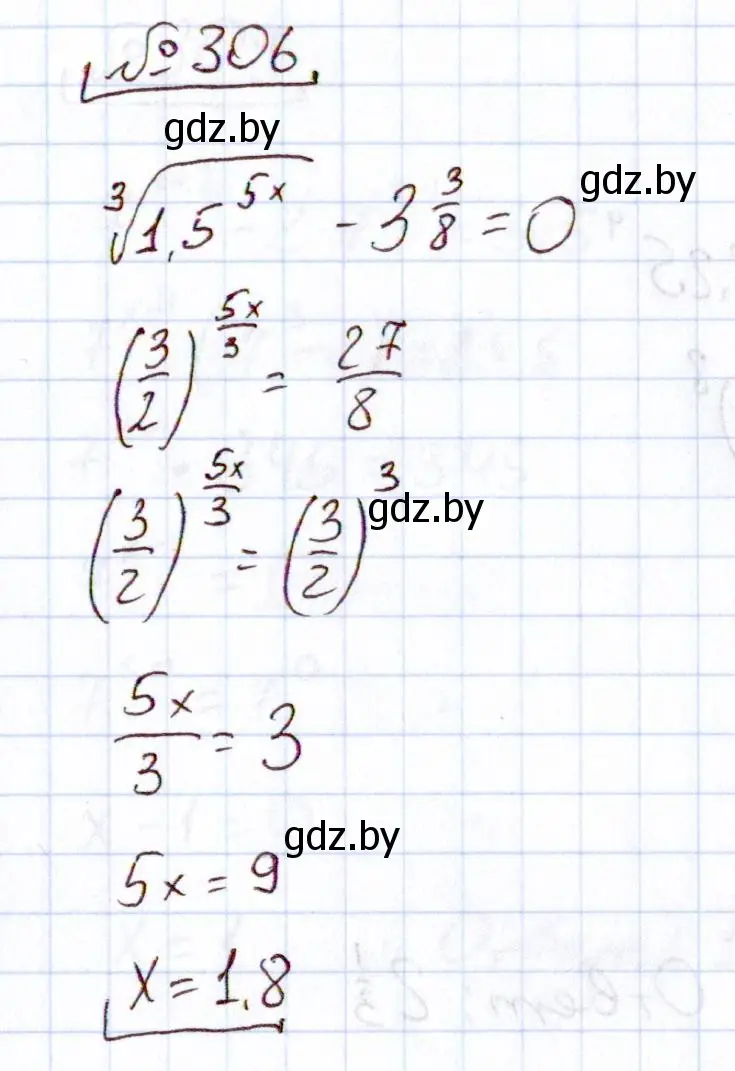 №306
gdz.by
∛(1,5^(5x)) - 3 3/8 = 0
gdz.by
(3/2)^(5x/3) = 27/8
(3/2)^(5x/3) = (3/2)^3
gdz.by
5x/3 = 3
gdz.by
5x = 9
x = 1,8